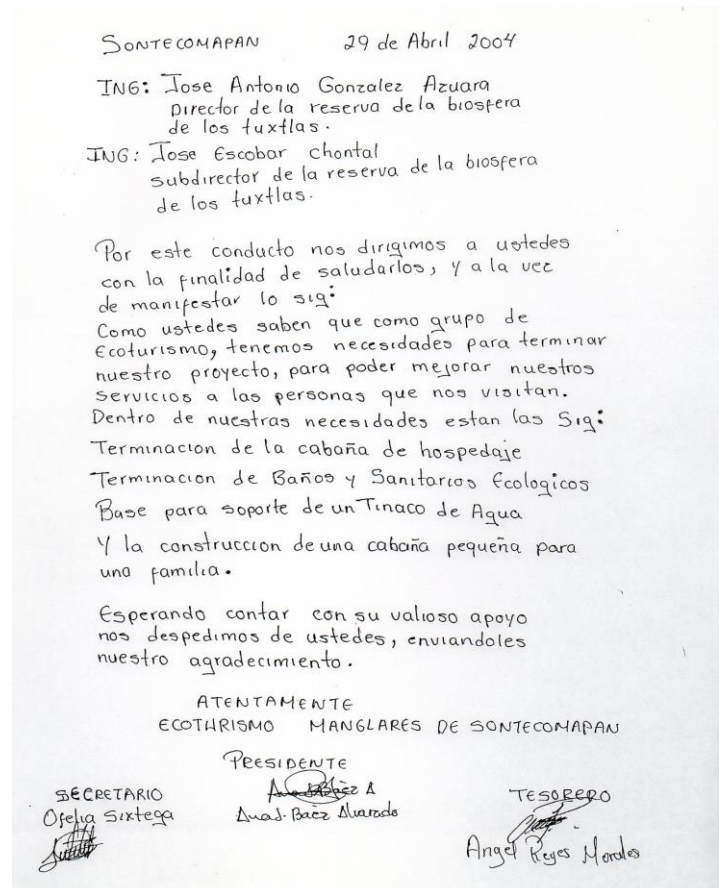 SONTECOMAPAN 29 de Abril 2004
ING: Jose Antonio Gonzalez Azuara
Director de la reserva de la biosfera
de los tuxtlas.
ING: Jose Escobar chontal
subdirector de la reserva de la biosfera
de los tuxtlas.
Por este conducto nos dirigimos a ustedes
con la finalidad de saludarlos, y a la vez
de manifestar lo sig:
Como ustedes saben que como grupo de
Ecoturismo, tenemos necesidades para terminar
nuestro proyecto, para poder mejorar nuestros
servicios a las personas que nos visitan.
Dentro de nuestras necesidades estan las Sig:
Terminacion de la cabaña de hospedaje
Terminacion de Baños y Sanitarios Ecologicos
Base para soporte de un Tinaco de Agua
Y la construccion de una cabaña pequeña para
una familia.
Esperando contar con su valioso apoyo
nos despedimos de ustedes, enviandoles
nuestro agradecimiento.
ATENTAMENTE
ECOTURISMO MANGLARES DE SONTECOMAPAN
PRESIDENTE
Baez A
Baez Alvarado
SECRETARIO
Ofelia Sixtega
TESORERO
Angel Reyes Morales